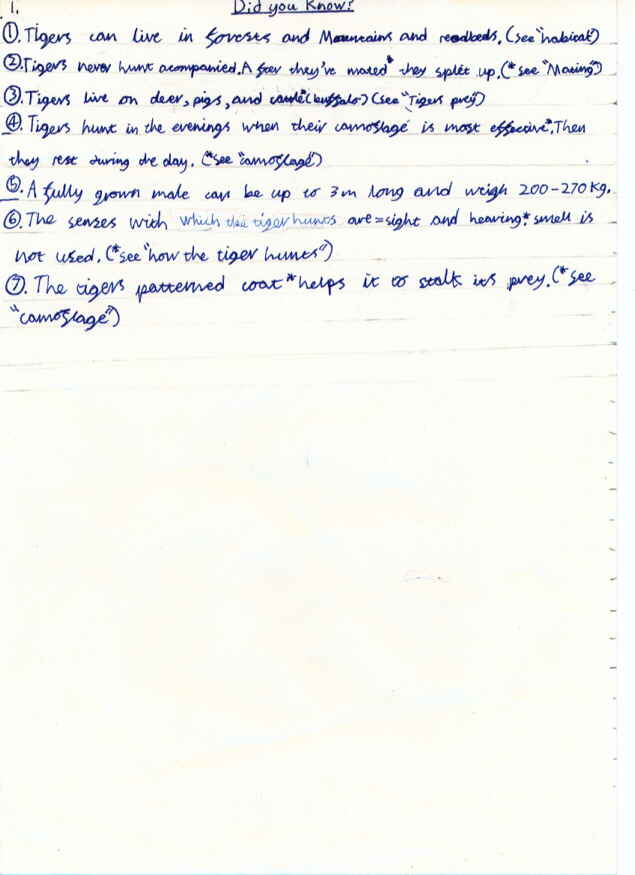 1. Did you Know?
①. Tigers can live in forests and Mountains and reedbeds. (see "habitat")
②. Tigers never hunt acompanied. After they've mated* they split up. (*see "Mating")
③. Tigers live on deer, pigs, and cattle* (buffalo) (see "Tigers prey")
④. Tigers hunt in the evenings when their camoflage is most effective*. Then
they rest during the day. (*see "camoflage")
⑤. A fully grown male can be up to 3m long and weigh 200-270 Kg.
⑥. The senses with which the tiger hunts are = sight and hearing* smell is
not used. (*see "how the tiger hunts")
⑦. The tigers patterned coat* helps it to stalk its prey. (*see
"camoflage")